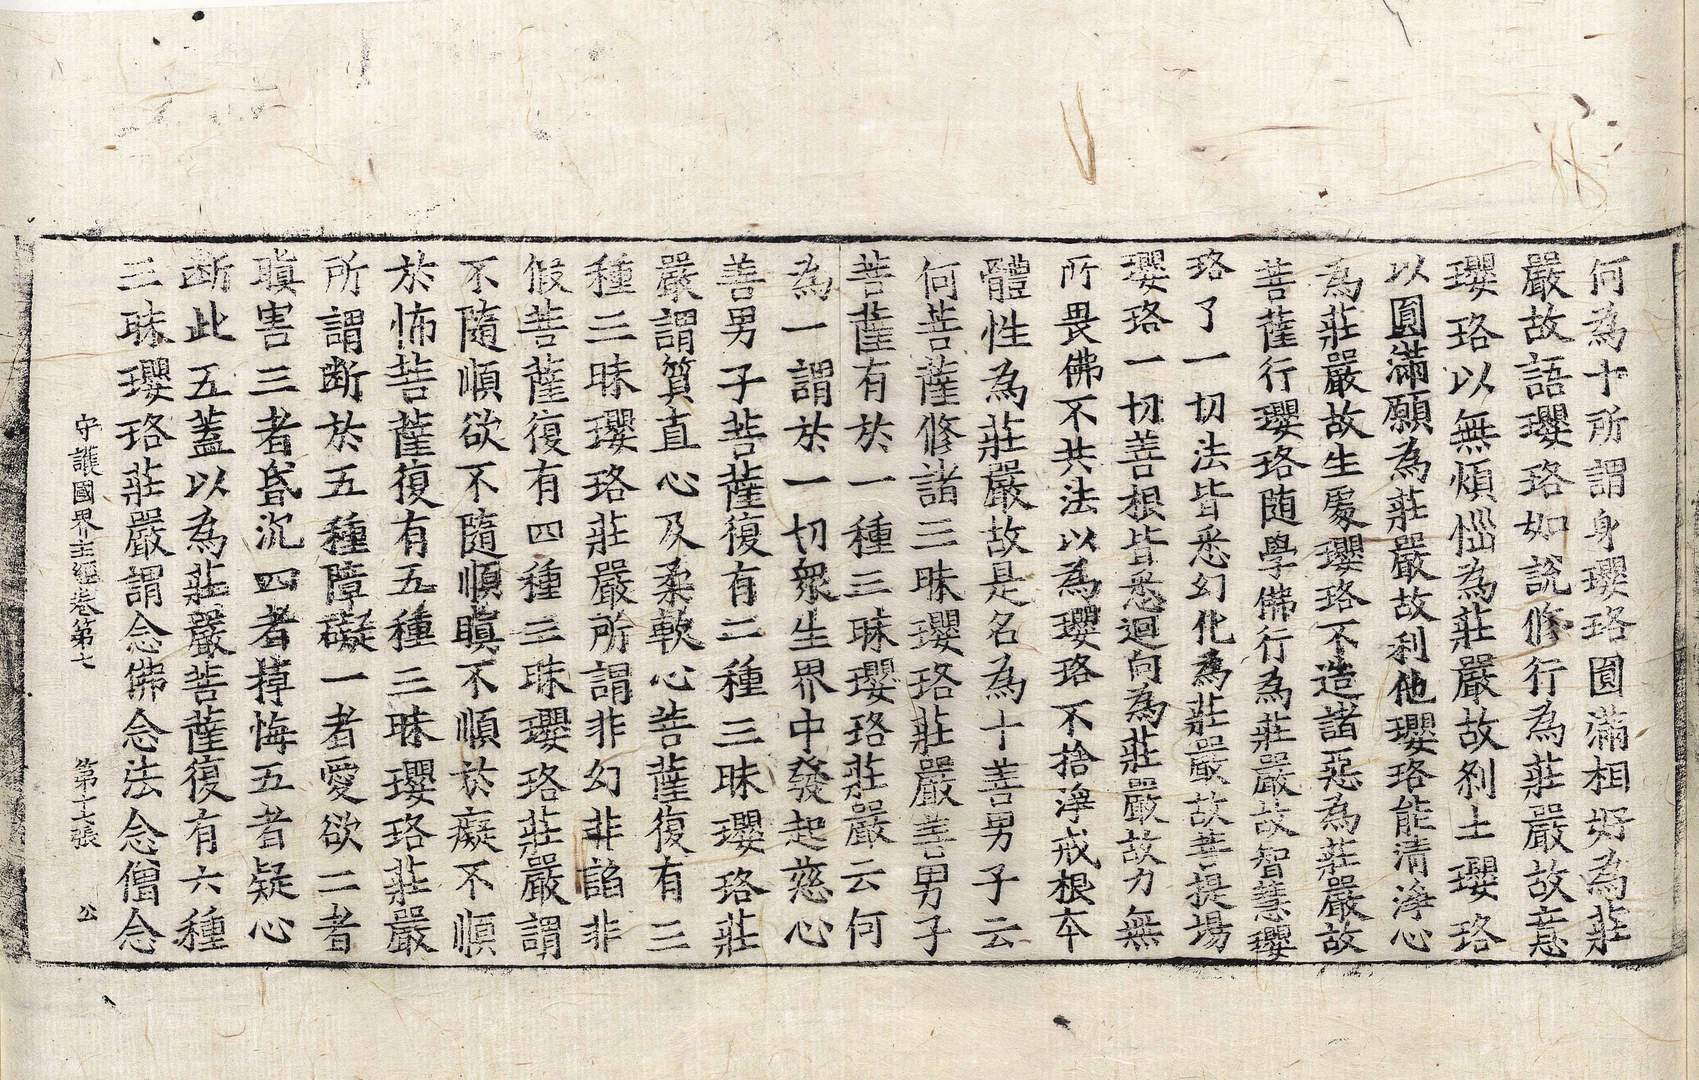 何為十所謂身瓔珞圓滿相好為莊
嚴故語瓔珞如說修行為莊嚴故意
瓔珞以無煩惱為莊嚴故刹土瓔珞
以圓滿願為莊嚴故利他瓔珞能清淨心
為莊嚴故生處瓔珞不造諸惡為莊嚴故
菩薩行瓔珞随學佛行為莊嚴故智慧瓔
珞了一切法皆悉幻化為莊嚴故菩提場
瓔珞一切善根皆悉迴向為莊嚴故力無
所畏佛不共法以為瓔珞不捨淨戒根本
體性為莊嚴故是名為十善男子云
何菩薩修諸三昧瓔珞莊嚴善男子
菩薩有於一種三昧瓔珞莊嚴云何
為一謂於一切衆生界中發起慈心
善男子菩薩復有二種三昧瓔珞莊
嚴謂質直心及柔軟心菩薩復有三
種三昧瓔珞莊嚴所謂非幻非諂非
假菩薩復有四種三昧瓔珞莊嚴謂
不隨順欲不隨順瞋不順於癡不順
於怖菩薩復有五種三昧瓔珞莊嚴
所謂断於五種障礙一者愛欲二者
瞋害三者昏沉四者掉悔五者疑心
断此五蓋以為莊嚴菩薩復有六種
三昧瓔珞莊嚴謂念佛念法念僧念
守護國界主經卷第七 第十七張 公